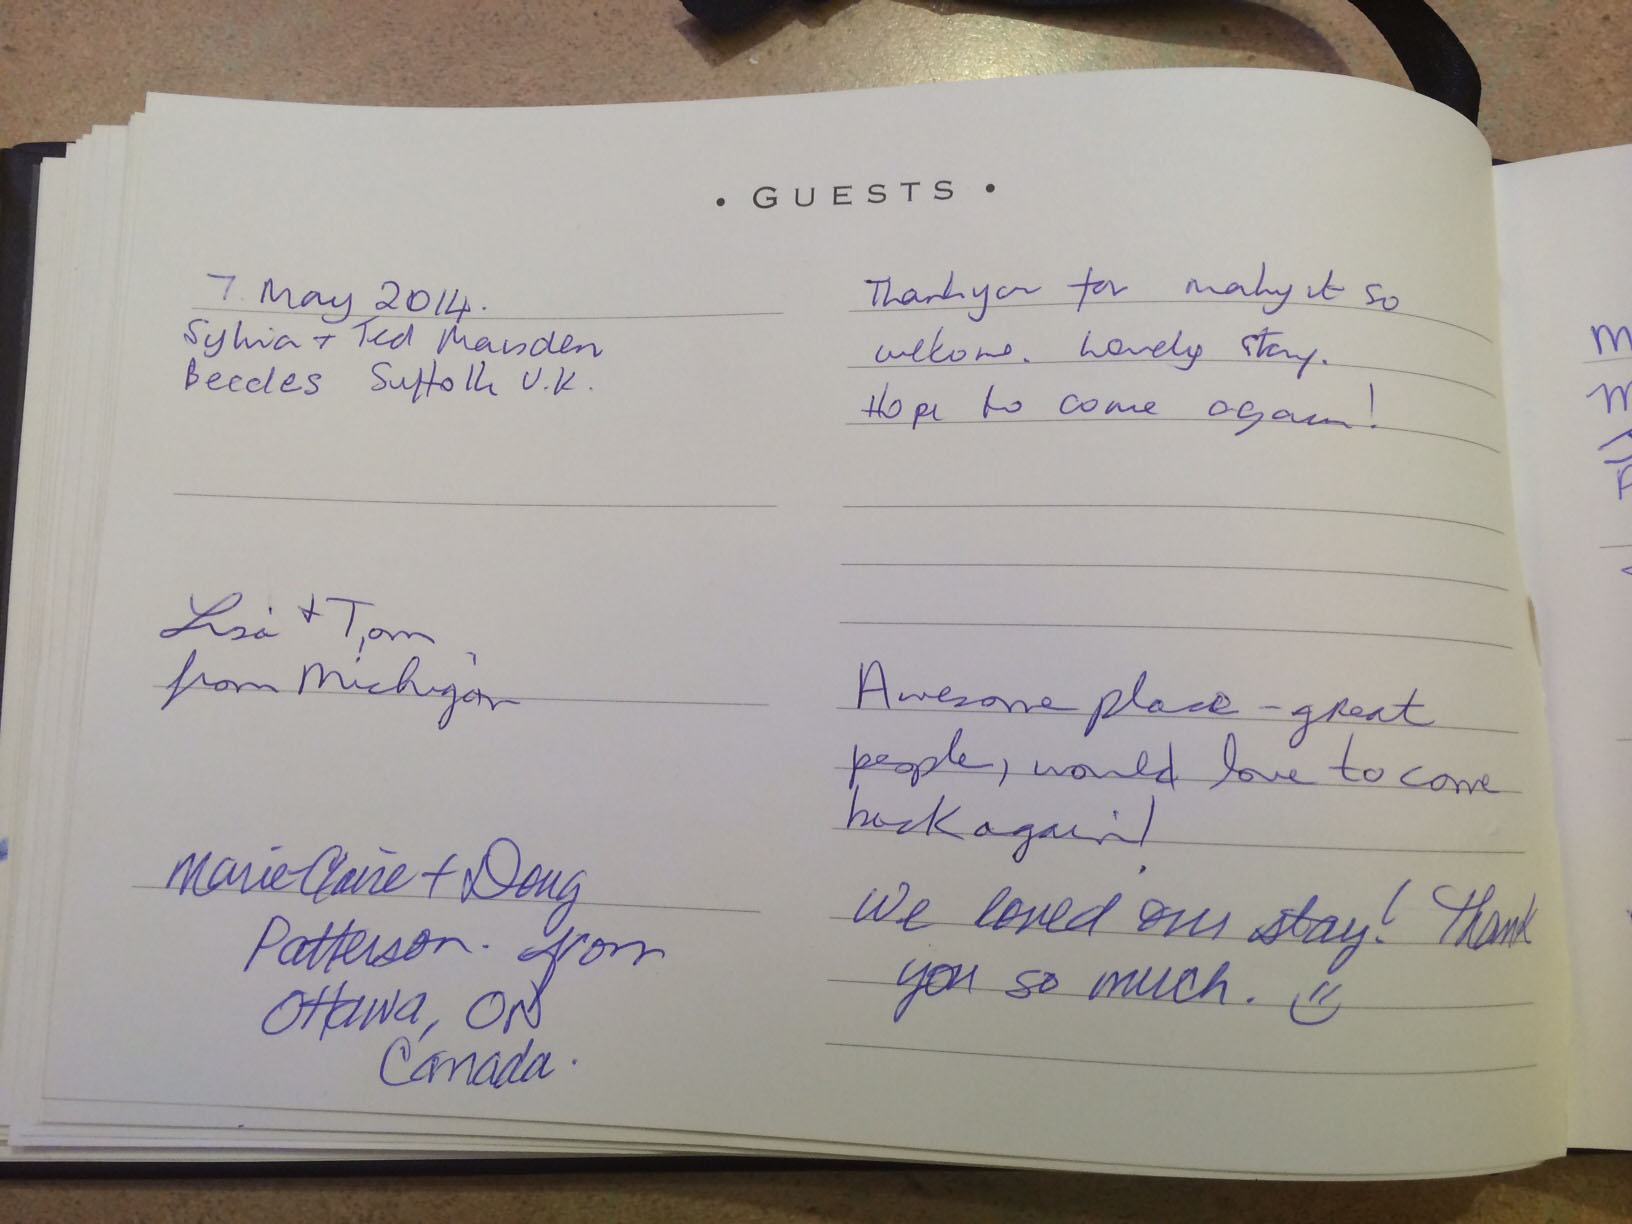 • GUESTS •
7. May 2014.
Sylvia + Ted Marsden
Beccles Suffolk U.K.
Thankyou for making it so
welcome. Lovely stay.
Hope to come again!
Lisa + Tom
from Michigan
Awesome place - great
people, would love to come
back again!
Marie-Claire + Doug
Patterson. from
Ottawa, ON
Canada.
We loved our stay! Thank
you so much. :)